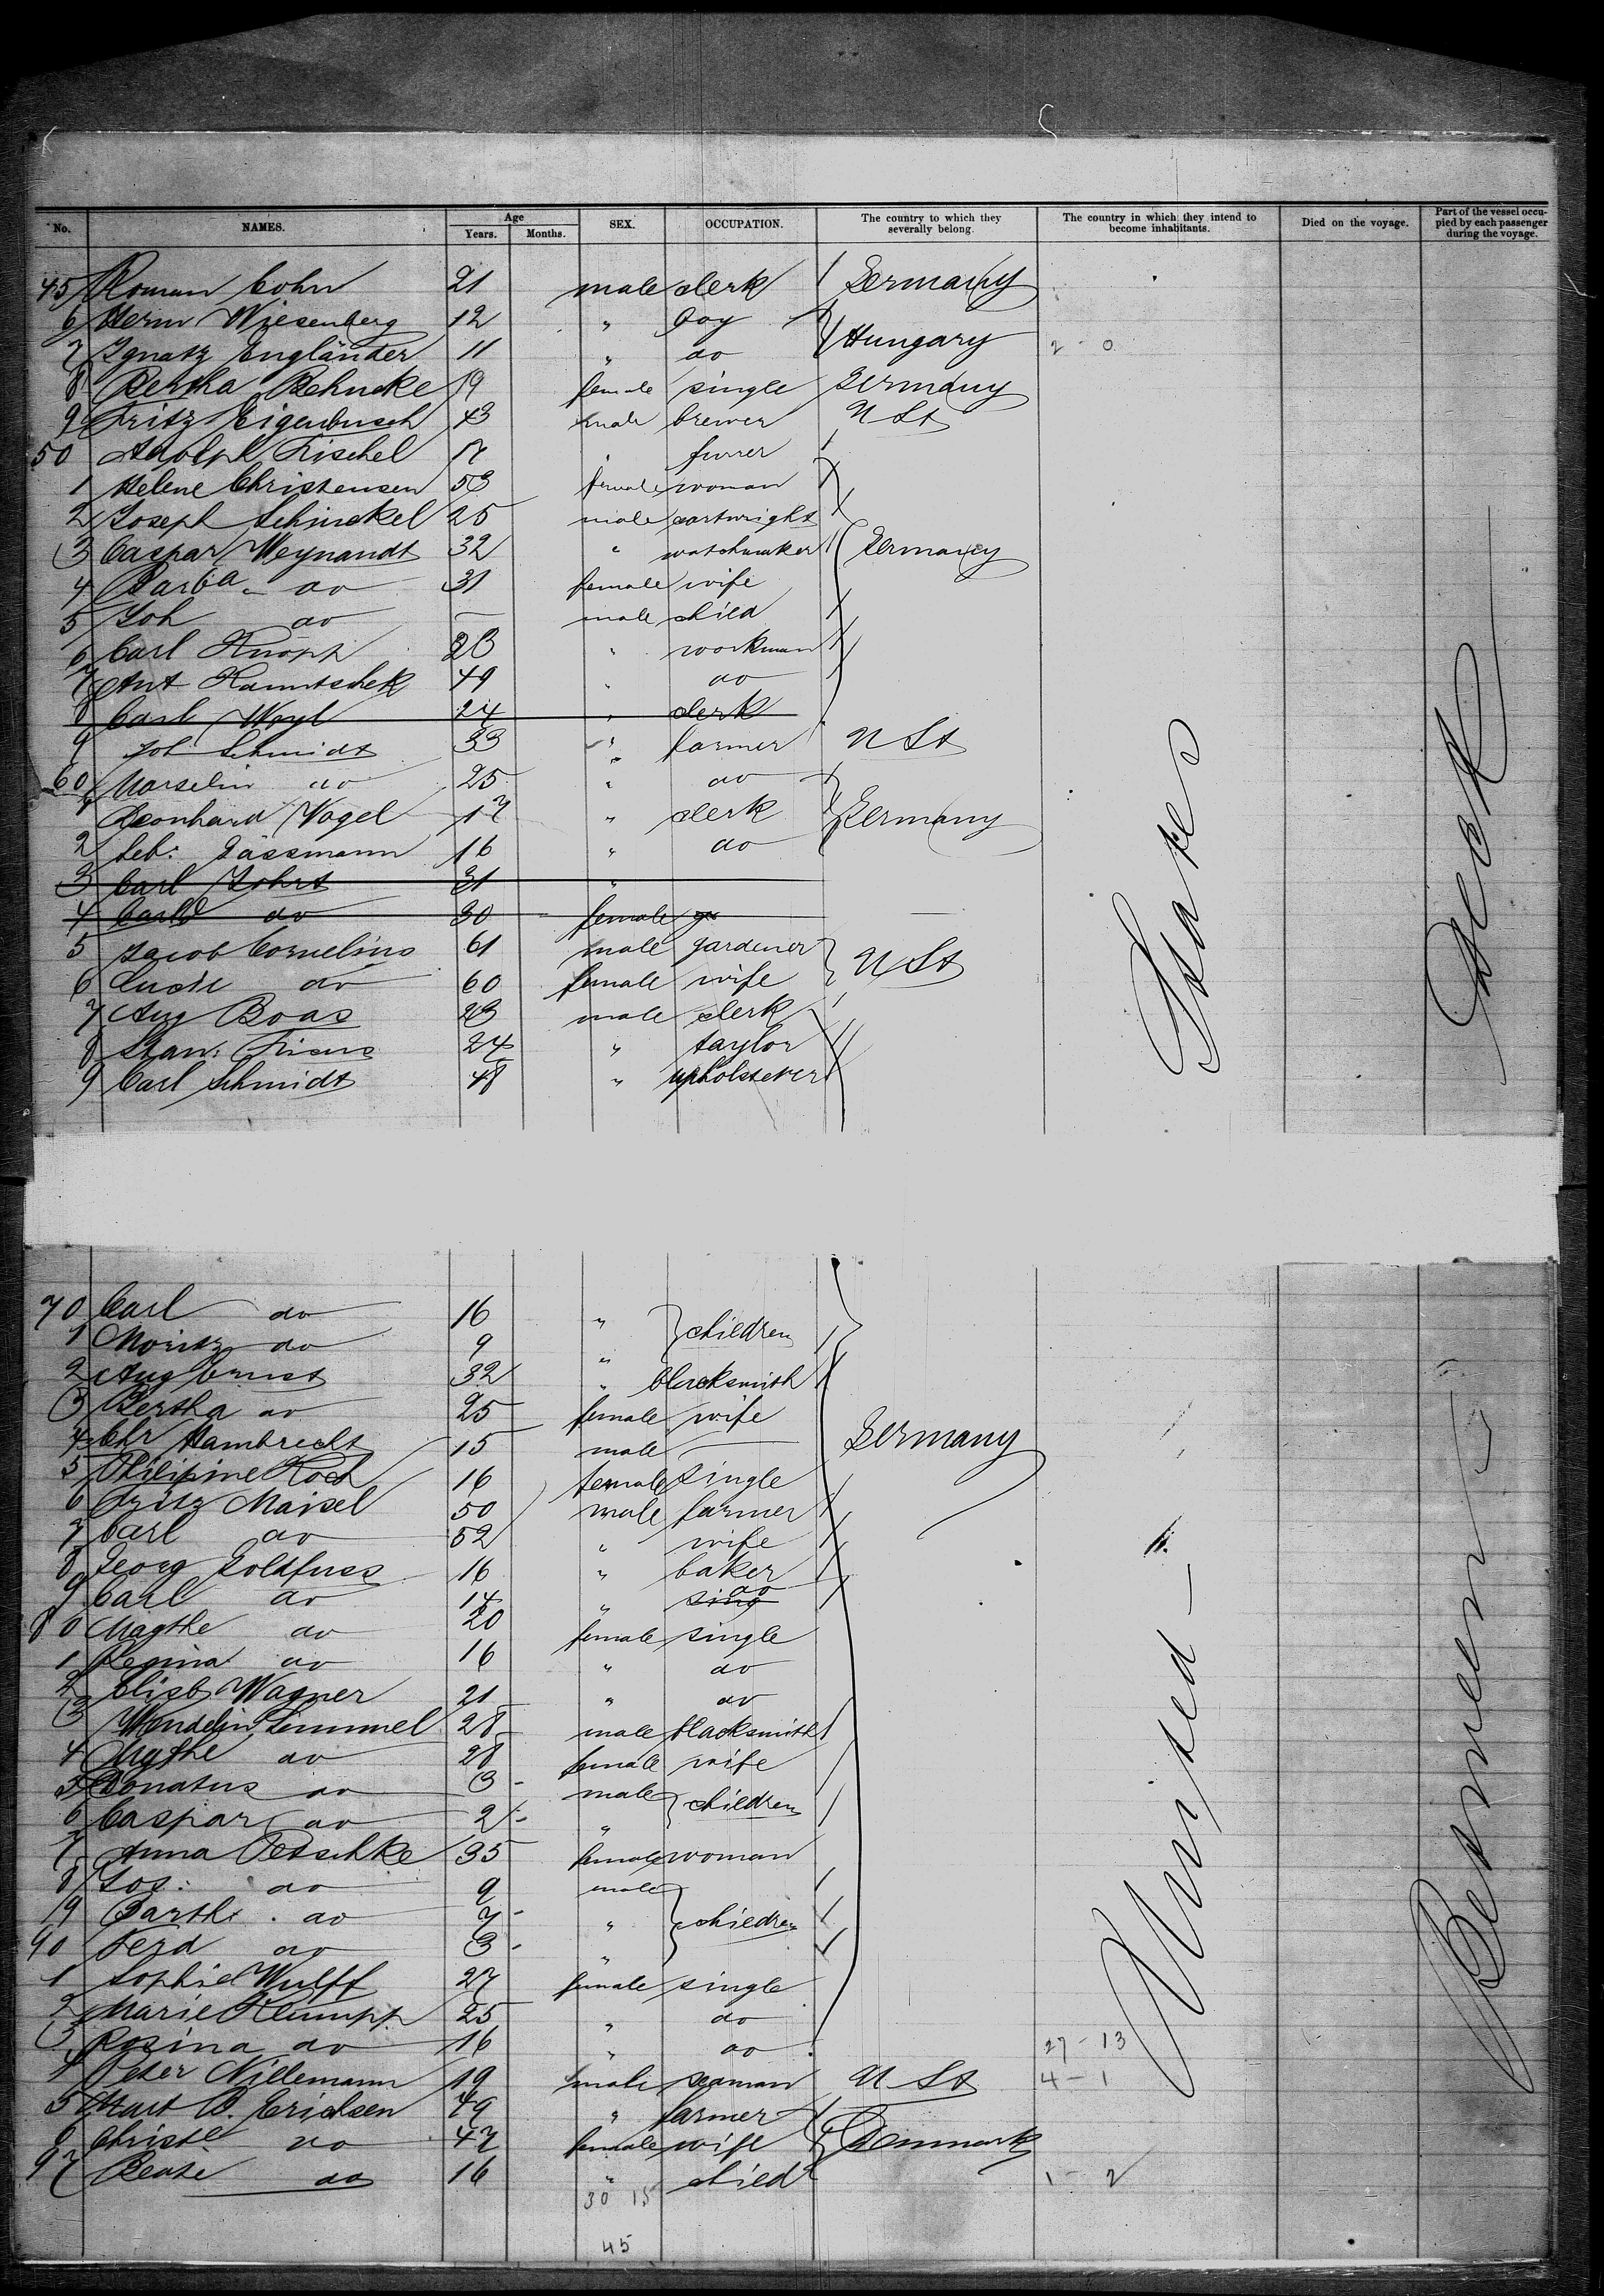 No. NAMES. Age Years. Months. SEX. OCCUPATION. The country to which they severally belong. The country in which they intend to become inhabitants. Died on the voyage. Part of the vessel occupied by each passenger during the voyage.
45 Roman Cohn 21 male clerk Germany
6 Herm Wiesenberg 12 " boy
7 Ignatz Engländer 11 " do Hungary 2 - 0
8 Bertha Behncke 19 female single Germany
9 Fritz Eigenbusch 43 male brewer U St
50 Adolph Fischel 17 " furrer
1 Helene Christensen 53 female woman
2 Joseph Schinckel 25 male cartwright
3 Caspar Weynandt 32 " watchmaker Germany
4 Barba do 31 female wife
5 Joh do — male child
6 Carl Knoph 23 " workman
7 Ant 49 " do
8 Carl Weyl 24 " clerk
9 Joh Schmidt 33 " farmer U St
60 Marselin do 25 " do
1 Leonhard Vogel 17 " clerk Germany
2 Seb: Gässmann 16 " do
3 Carl 31 "
4 do 30 female
5 Jacob Cornelius 61 male gardener U St
6 do 60 female wife
7 Aug Boas 23 male clerk
8 Stan: 24 " taylor
9 Carl Schmidt 48 " upholsterer
States
Deck
70 Carl do 16 " children
1 Moritz do 9 "
2 Aug Ernst 32 " blacksmith
3 Bertha do 25 female wife
4 Chr Hambrecht 15 male — Germany
5 Philipine Koch 16 female single
6 Fritz Maisel 50 male farmer
7 Carl do 52 " wife
8 Georg Goldfuss 16 " baker
9 Carl do 14 " do
80 Magthe do 20 female single
1 Regina do 16 " do
2 Elisb Wagner 21 " do
3 Wendelin Semmel 28 male blacksmith
4 do 28 female wife
5 Donatus do 3 male children
6 Caspar do 2 "
7 Anna Petschke 35 female woman
8 Jos: do 9 male
9 Barth. do 7 " children
90 Ferd do 3 "
1 Sophie Wulff 27 female single
2 Marie Klumpp 25 " do
3 Rosina do 16 " do 27 - 13
4 Peter Nillemann 19 male seaman U St 4 - 1
5 B. Erichsen 49 " farmer
6 Christe do 47 female wife Denmark
97 Beate do 16 " child 1 - 2
30 15
45
United
Between